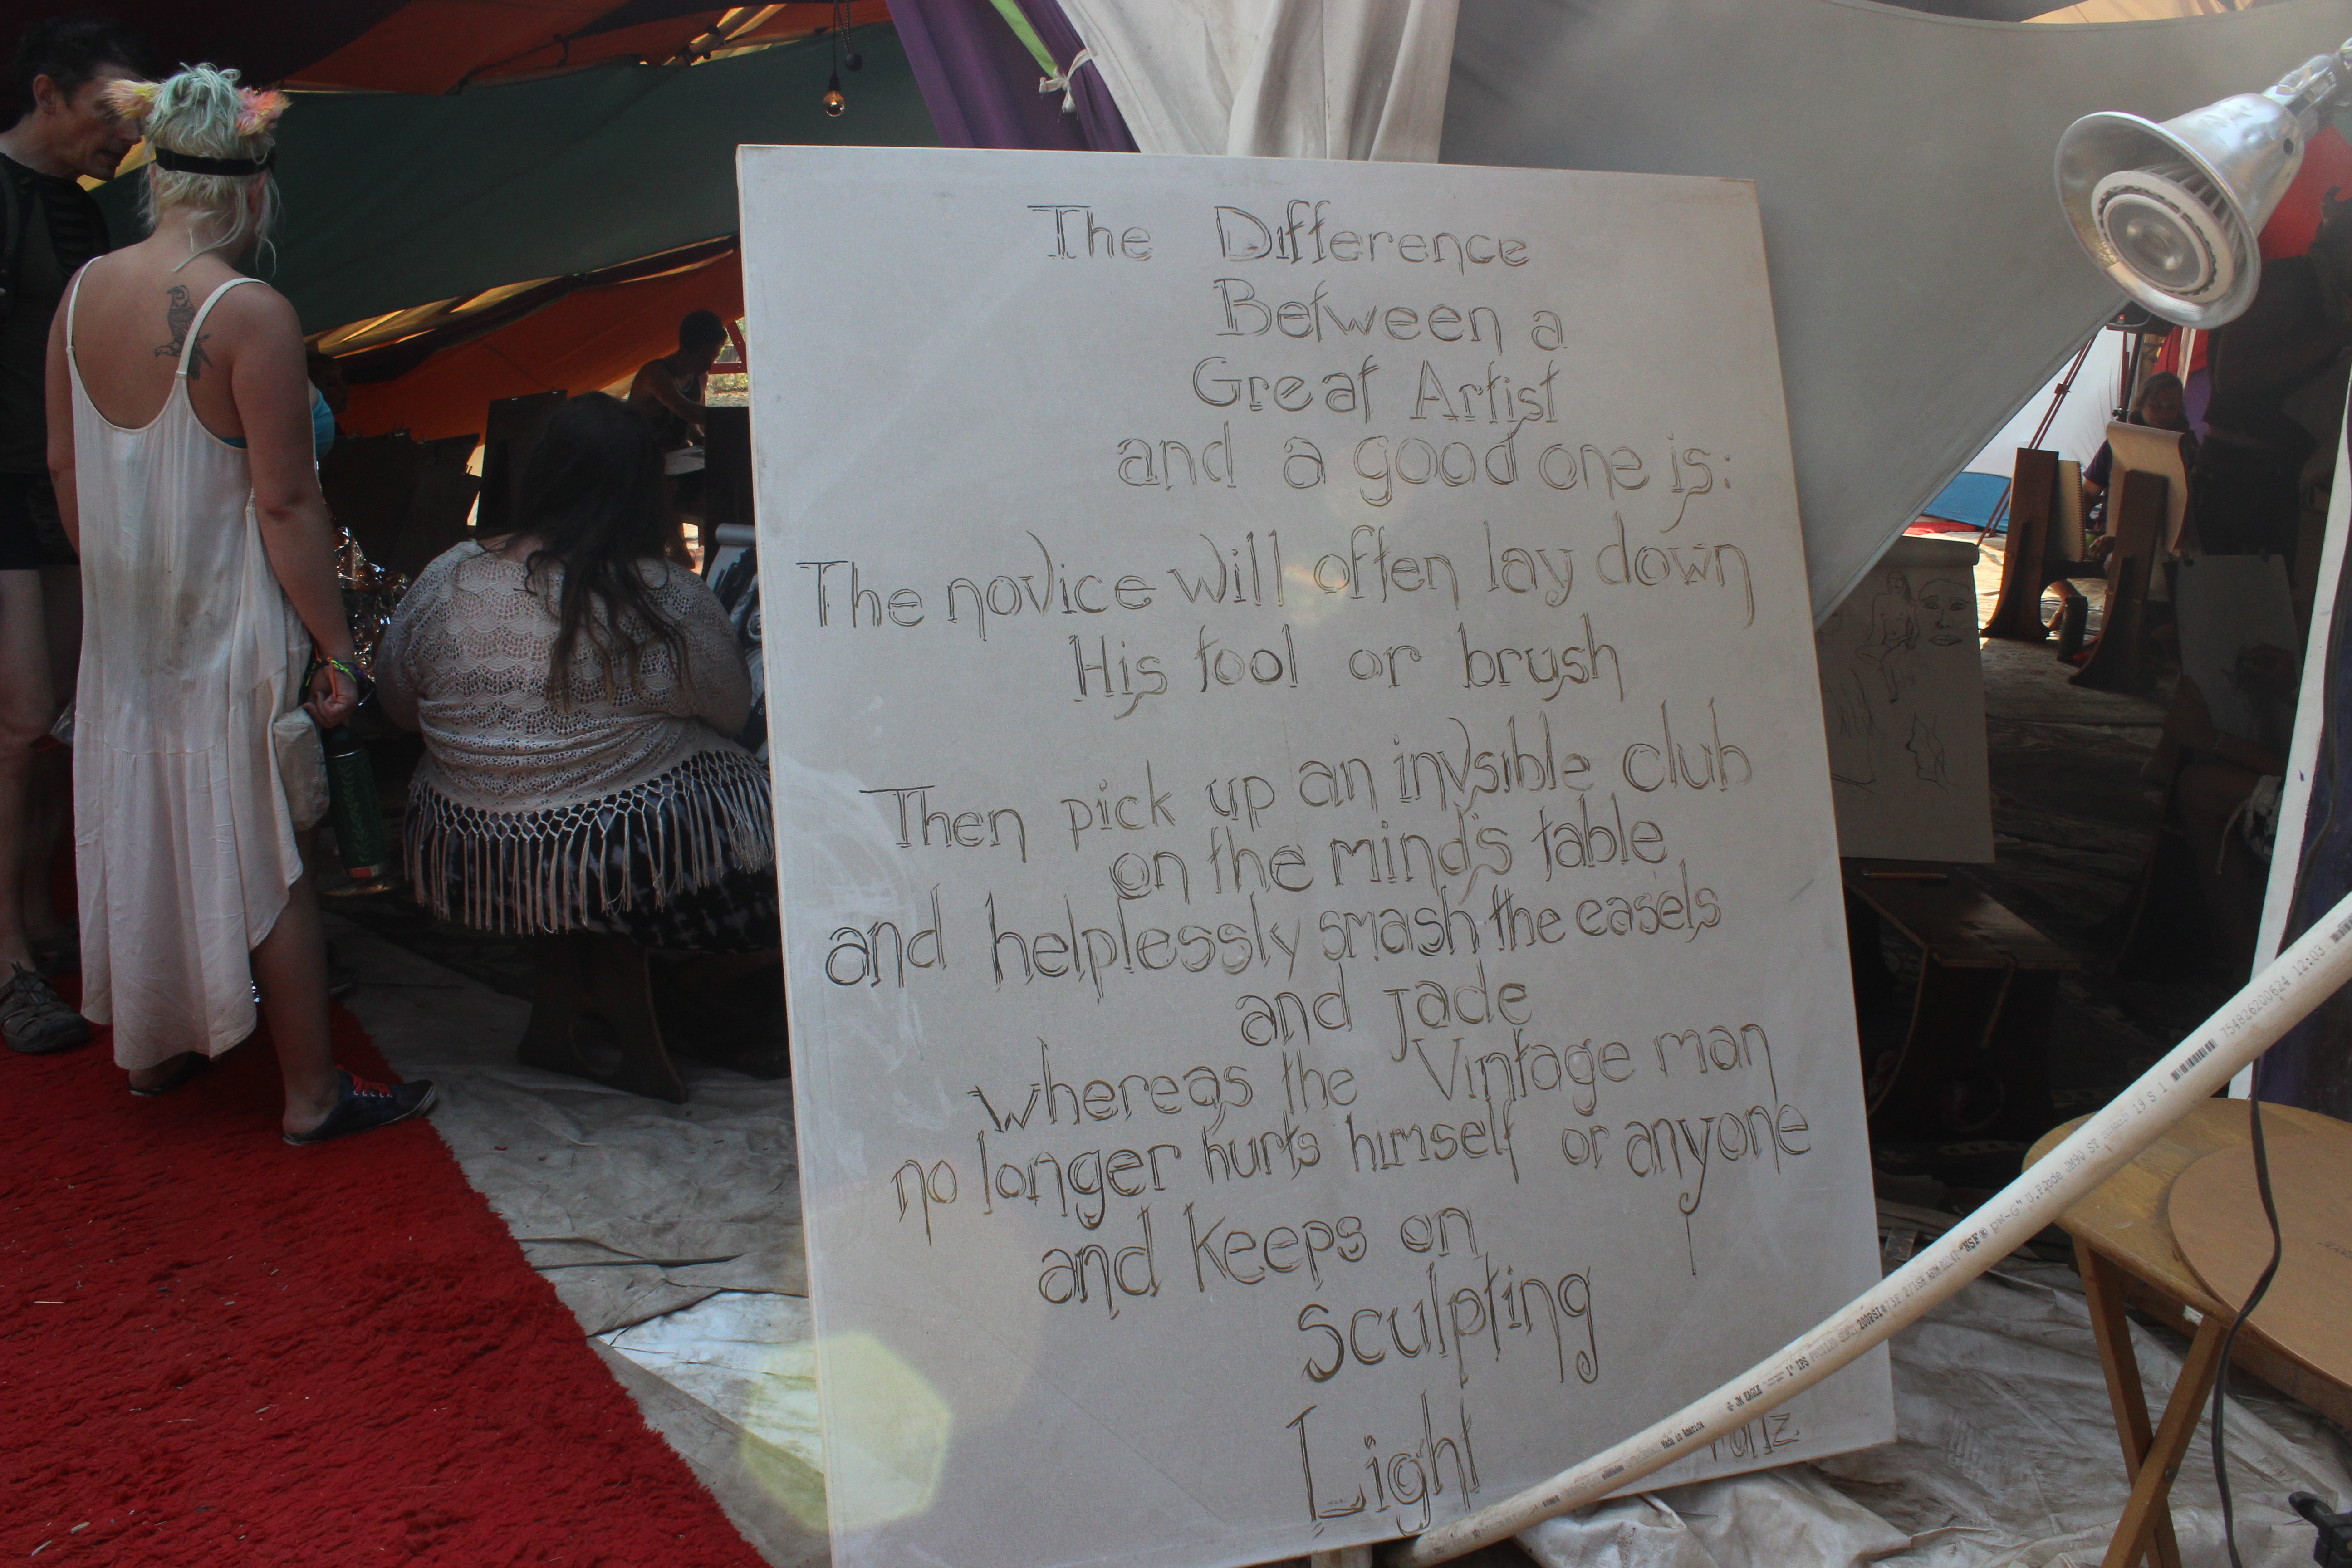 The Difference
Between a
Great Artist
and a good one is:
The novice will often lay down
His tool or brush
Then pick up an invsible club
on the mind's table
and helplessly smash the easels
and jade
whereas the Vintage man
no longer hurts himself or anyone
and keeps on
Sculpting
Light
754826200624 12:03
Made in America